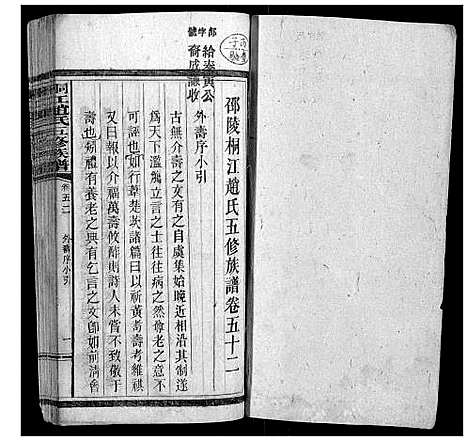 邵陵桐江趙氏五修族譜卷五十二
外壽序小引
古無介壽之文有之自虞集始晚近相沿其制遂
為天下濫觴立言之士往往病之然尊老之意不
可誣也詩行葦楚茨諸篇曰以祈黃耇壽考維祺
又曰報以介福萬壽攸酢則詩人未嘗不致敬于
壽也矧禮有養老之典有乞言之文卽如前清會
部字號
給奏廣公
裔成謙收
桐江趙氏五修族譜
卷五二
外壽序小引
一